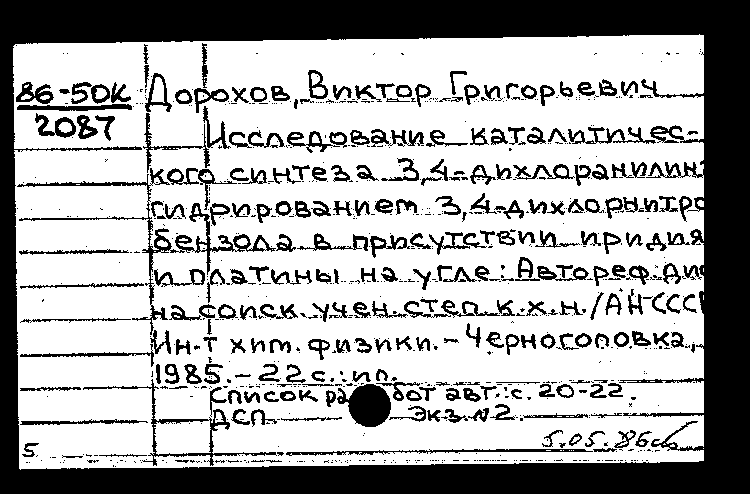 86-50К Дорохов, Виктор Григорьевич
2087
Исследование каталитичес-
кого синтеза 3,4-дихлоранилин
гидрированием 3,4-дихлорнитро
бензола в присутствии иридия
и платины на угле: Автореф. ди
на соиск. учен. степ. к.х.н. / АН СССР
Ин-т хим. физики. - Черноголовка,
1985. - 22 с.: ил.
Список работ авт.: с. 20-22.
ДСП Экз. №2.
5.05.86
5